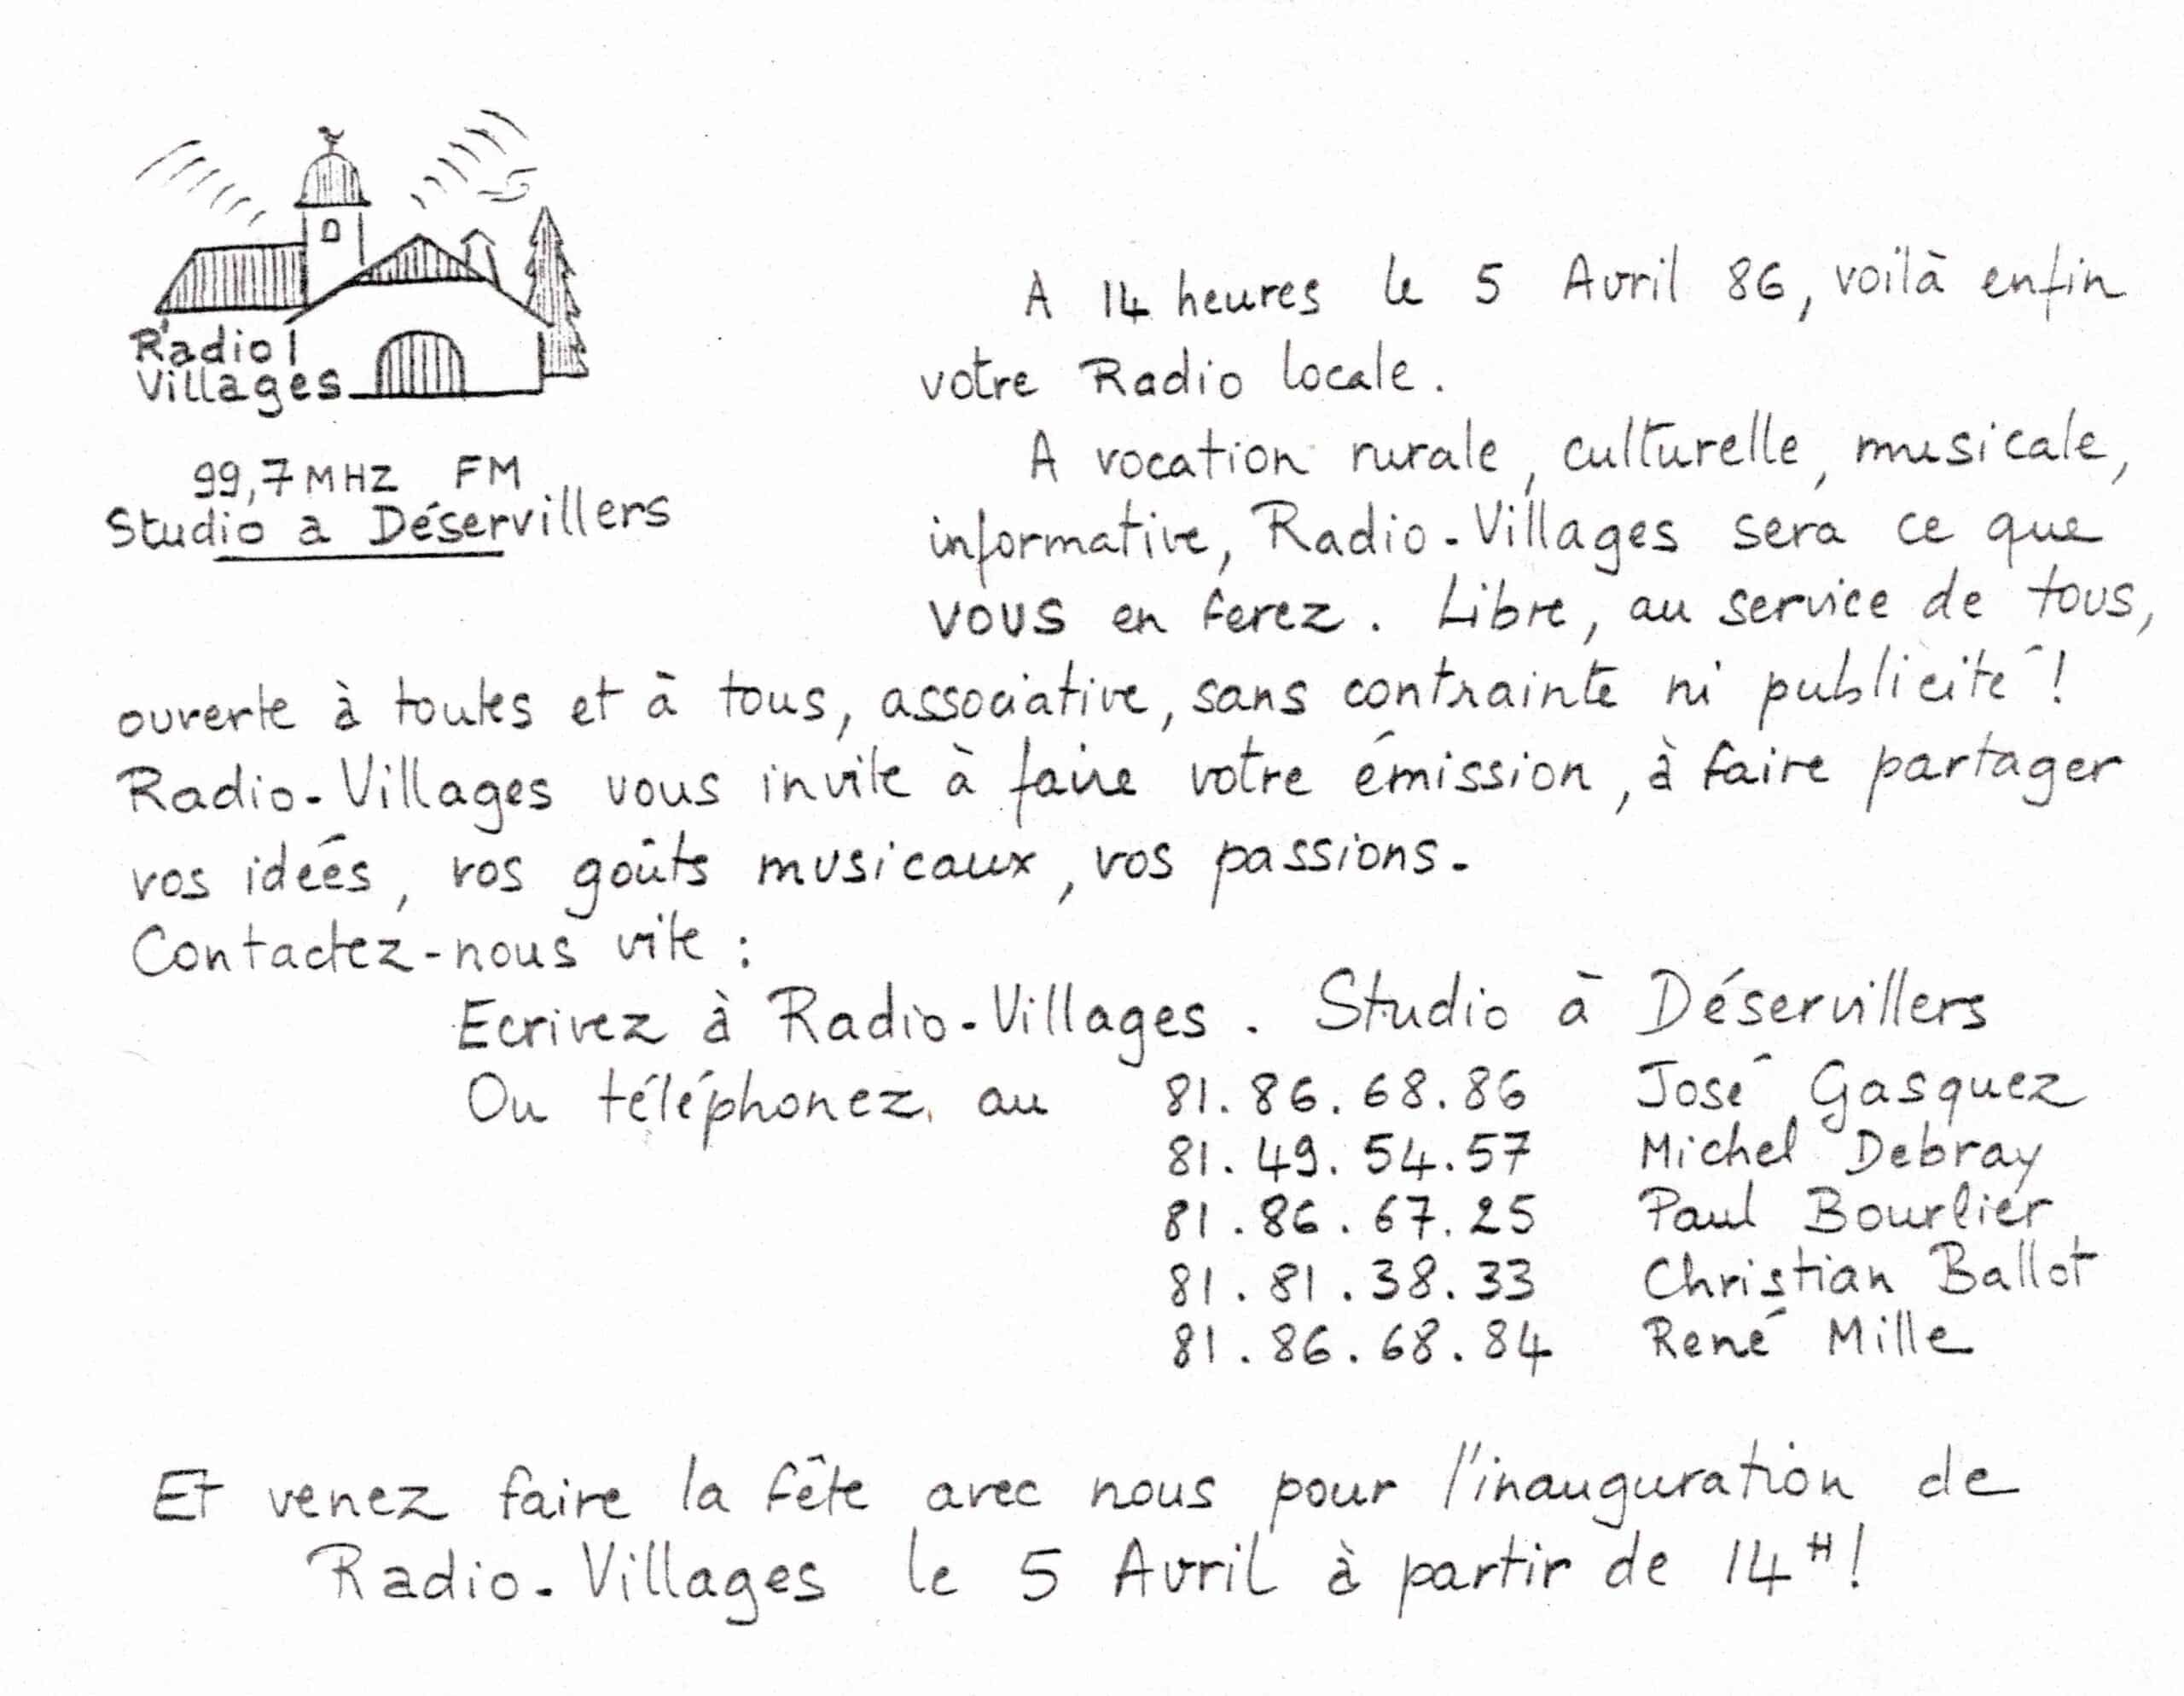 Radio
Villages
99,7 MHZ FM
Studio a Déservillers
A 14 heures le 5 Avril 86, voilà enfin
votre Radio locale.
A vocation rurale, culturelle, musicale,
informative, Radio-Villages sera ce que
VOUS en ferez. Libre, au service de tous,
ouverte à toutes et à tous, associative, sans contrainte ni publicité !
Radio-Villages vous invite à faire votre émission, à faire partager
vos idées, vos goûts musicaux, vos passions.
Contactez-nous vite :
Ecrivez à Radio-Villages. Studio à Déservillers
Ou téléphonez au 81.86.68.86 José Gasquez
81.49.54.57 Michel Debray
81.86.67.25 Paul Bourlier
81.81.38.33 Christian Ballot
81.86.68.84 René Mille
Et venez faire la fête avec nous pour l'inauguration de
Radio-Villages le 5 Avril à partir de 14H!